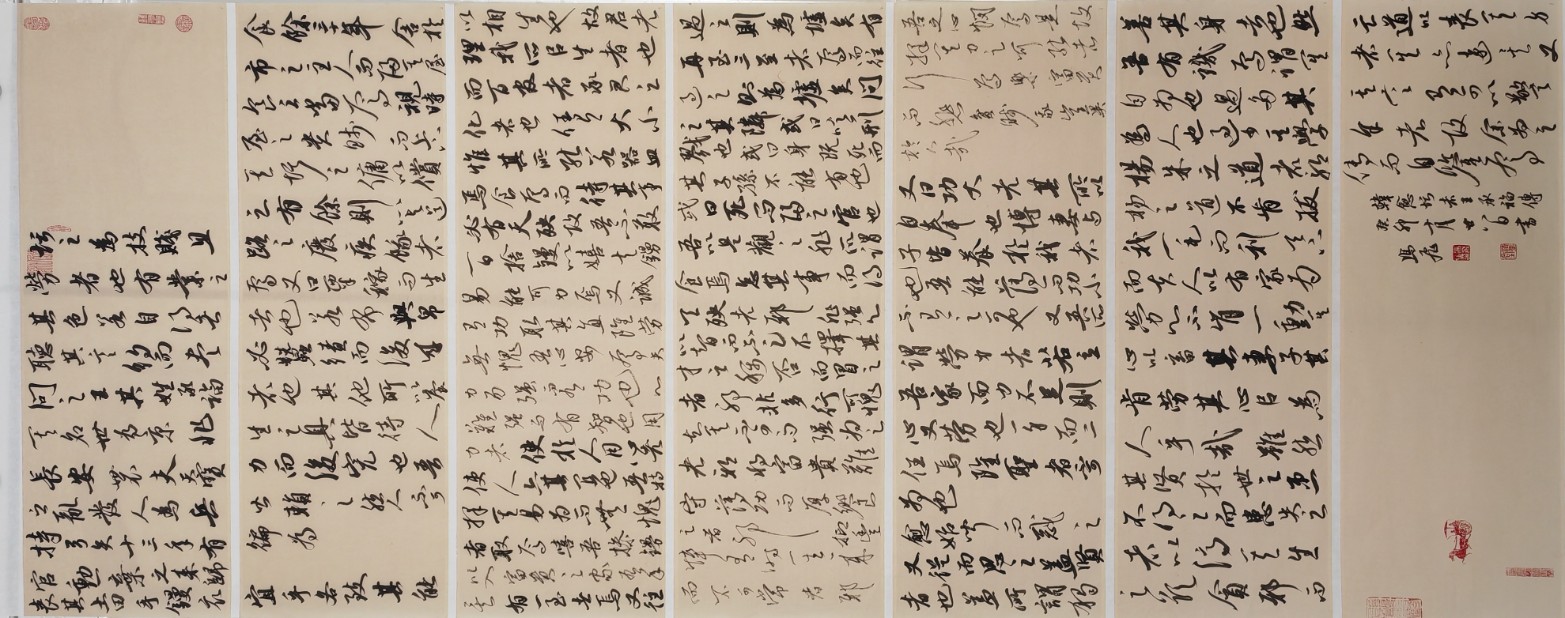 圬之為技賤且
勞者也有業之
其色若自得者
聽其言約而盡
問之王其姓承福
其名世為京兆
長安農夫天寶
之亂發人為兵
持弓矢十三年有
官勳棄之來歸
喪其土田手鏝衣
食餘三十年舍於
市之主人而歸其屋
食之當焉視時
屋食之貴賤而上下
其圬之傭以償之
有餘則以與道
路之廢疾餓者
焉又曰粟稼而生
者也若布與帛
必蠶績而後成
者也其他所以養
生之具皆待人
力而後完也吾
皆賴之然人不
可徧為
宜乎各致其能
以相生也故君者
理我所以生者也
而百官者承君之
化者也任有大小
惟其所能若器皿
焉食焉而怠其事
必有天殃故吾不敢
一日捨鏝以嬉夫鏝
易能可力焉又誠
有功取其直雖勞
無愧吾心安焉夫
力易強而有功也
心難強而有智也用
力者使於人用心者
使人亦其宜也吾特
擇其易為而無愧
者取焉嘻吾操鏝
以入富貴之家有年矣
有一至者焉又往
過之則為墟矣有
再至三至者焉而往
過之則為墟矣問
之其鄰或曰噫刑
戮也或曰身既死而
其子孫不能有也
或曰死而歸之官也
吾以是觀之非所謂
食焉怠其事而得
天殃者邪非強心
以智而不足不擇其
才之稱否而冒之
者邪非多行可愧
知其不可而強為之
者邪將富貴難
守薄功而厚饗之
者邪抑豐悴有
時一去一來
而不可常者邪
吾之心憫焉是故
擇其力之可能者
行焉樂富貴
而悲貧賤我豈異
於人哉
又曰功大者其所以
自奉也博妻與
子皆養於我者
也吾能薄而功小
不有之可也又吾所
謂勞力者若立
吾家而力不足則
心又勞也一身而二
任焉雖聖者不可
為也
愈始聞而惑之
又從而思之蓋賢
者也蓋所謂獨
善其身者也然
吾有譏焉謂其
自為也過多其
為人也過少其學
楊朱之道者邪
楊之道不肯拔
我一毛而利天下
而夫人以有家為
勞心不肯一動其
心以畜其妻子其
肯勞其心以為
人乎哉雖然
其賢於世之患
不得之而患失之
者以濟其生
之欲貪邪而
亡道以喪其身
者其亦遠矣又
其言有可以警余
者故余為之
傳而自鑒焉
韓愈圬者王承福傳
癸卯十月廿八日書